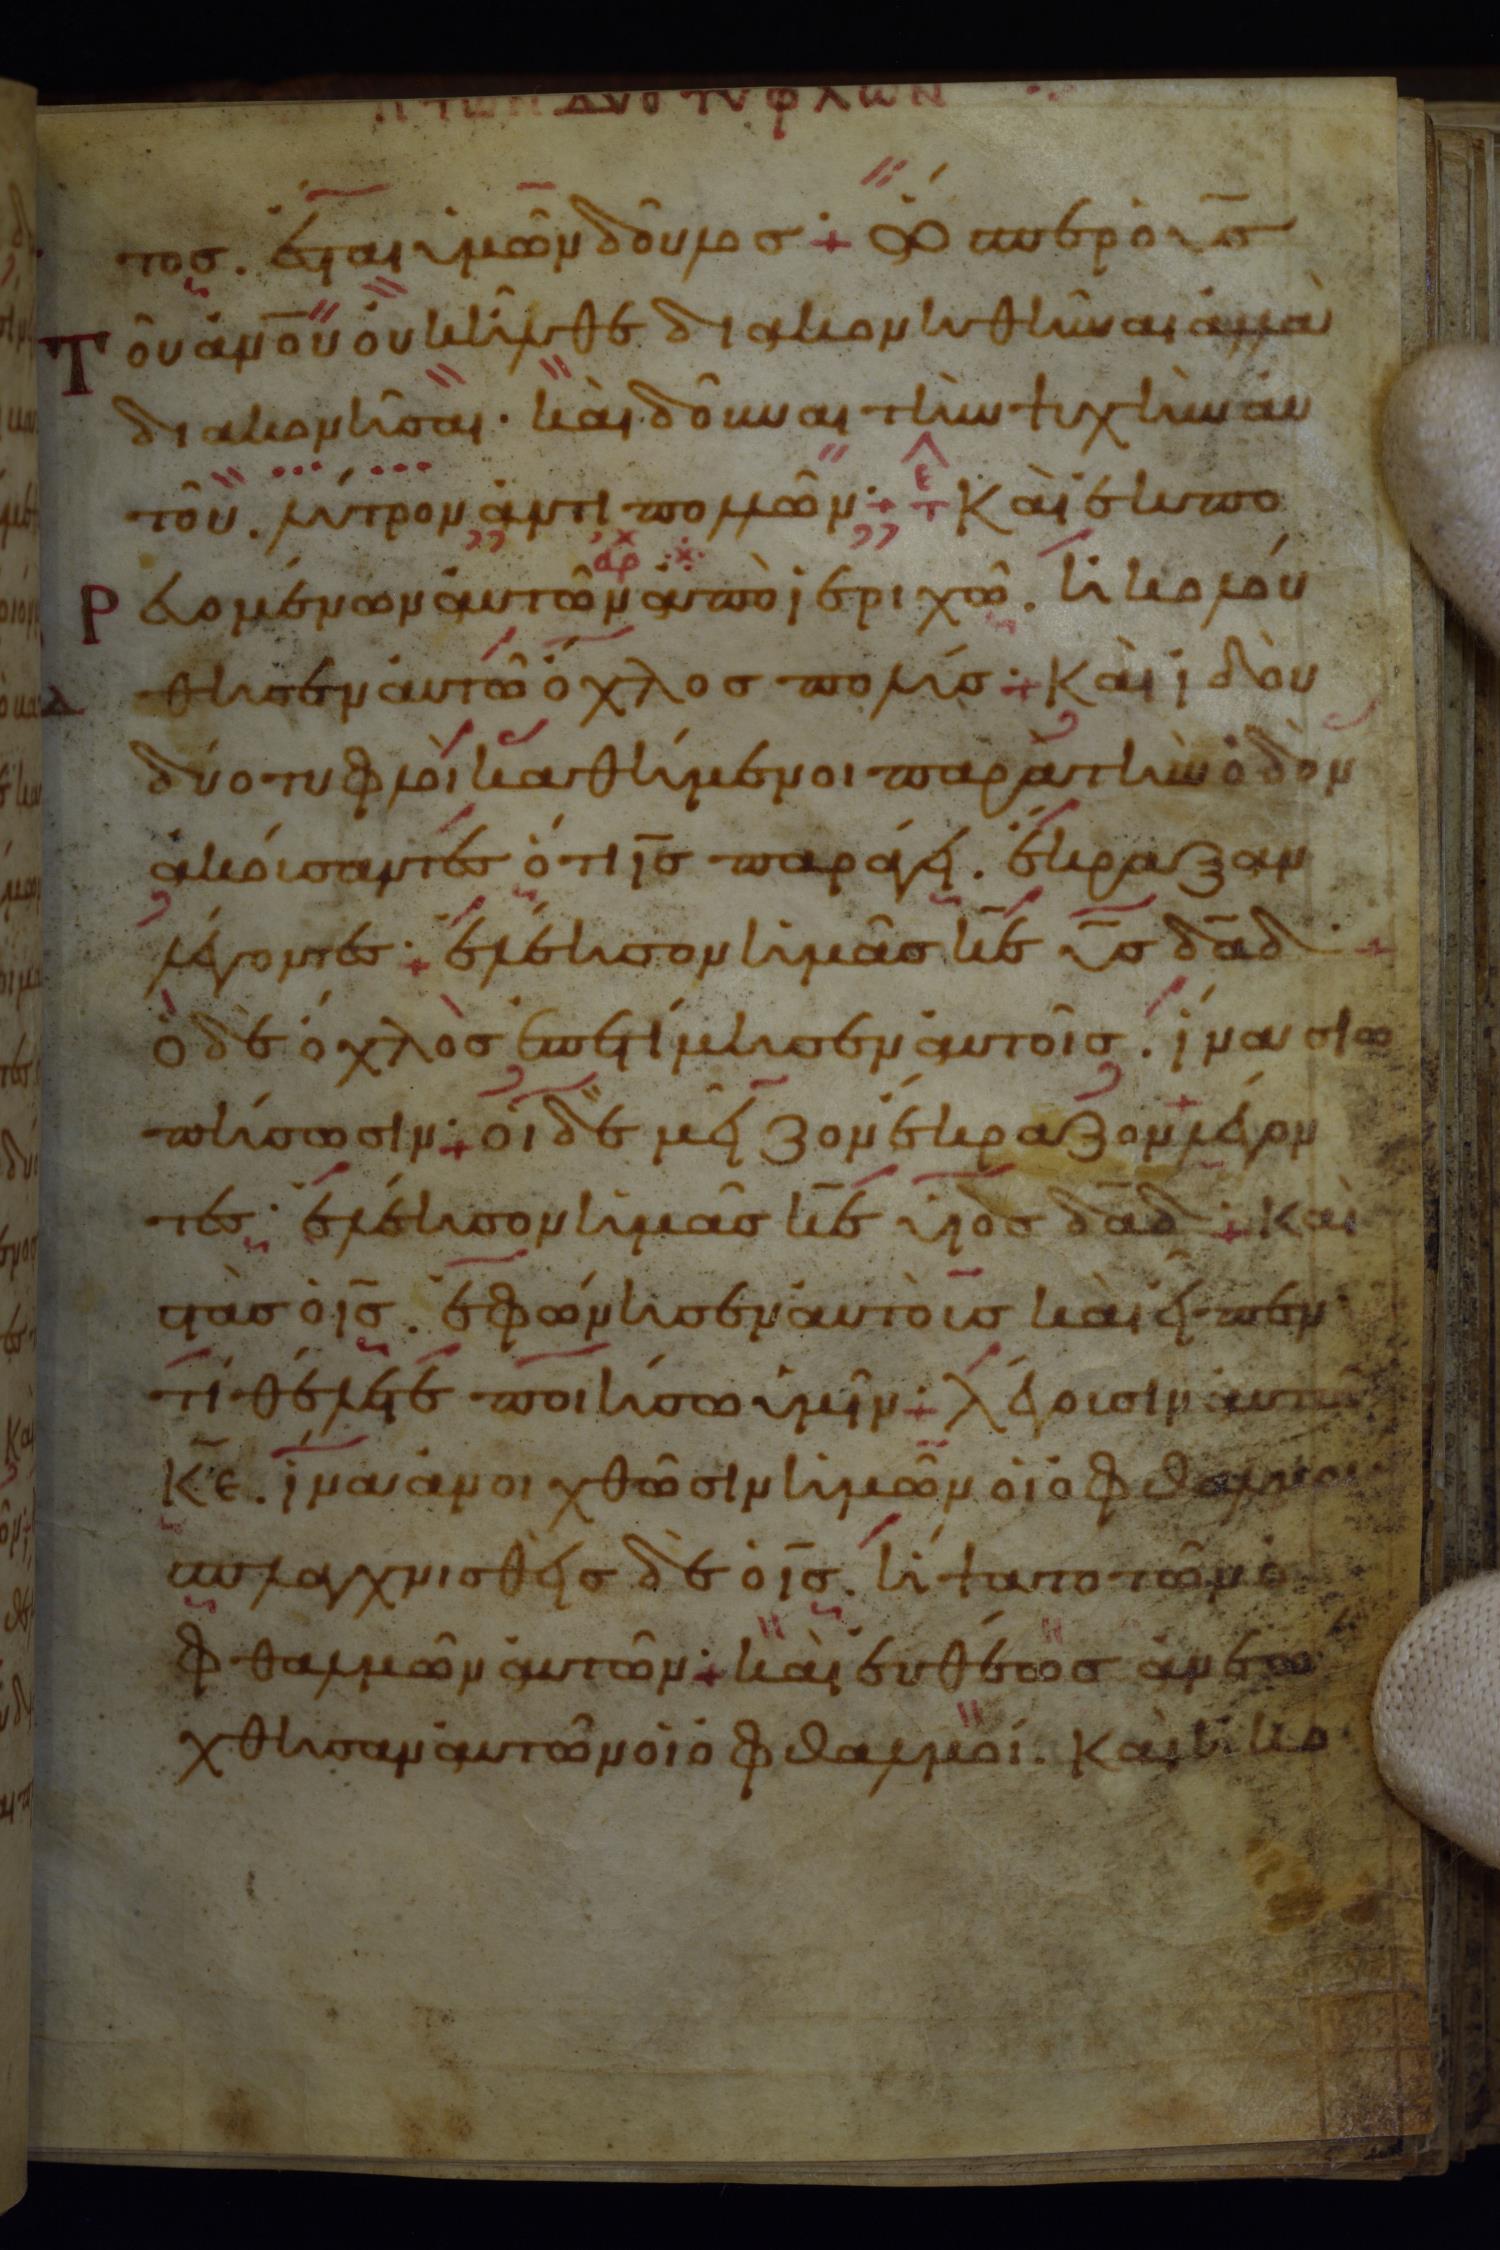 π τῶν δύο τυφλῶν
τος. ἔσται ὑμῶν δοῦλος + ὥσπερ ὁ υ̅ς̅
Τοῦ ἀνο̅υ̅ οὐκ ἦλθε διακονηθῆναι ἀλλὰ
διακονῆσαι. καὶ δοῦναι τὴν ψυχὴν αὐ
τοῦ. λύτρον ἀντὶ πολλῶν: + Καὶ ἐκπο
Ρ ευομένων αὐτῶν ἀπὸ ἱεριχῶ. ἠκολού
θησεν αὐτῶ ὄχλος πολύς: + Καὶ ἰδοὺ
δύο τυφλοὶ καθήμενοι παρὰ τὴν ὁδὸν
ἀκούσαντες ὅτι ι̅ς̅ παράγει. ἔκραξαν
λέγοντες: + ἐλέησον ἡμᾶς κ̅ε̅ υ̅ς̅ δ̅α̅δ̅: +
ὁ δὲ ὄχλος ἐπετίμησεν αὐτοῖς. ἵνα σιω
πήσωσιν: + οἱ δὲ μεῖζον ἔκραζον λέγον
τες: ἐλέησον ἡμᾶς κ̅ε̅ υἱὸς δ̅α̅δ̅: + Καὶ
στὰς ὁ ι̅ς̅. ἐφώνησεν αὐτοὺς καὶ εἶπεν:
τί θέλετε ποιήσω ὑμῖν: + λέγουσιν αὐτῶ
Κ̅ε̅. ἵνα ἀνοιχθῶσιν ἡμῶν οἱ ὀφθαλμοι
σπλαγχνισθεὶς δὲ ὁ ι̅ς̅. ἥψατο τῶν ὀ
φθαλμῶν αὐτῶν: + καὶ εὐθέως ἀνεω
χθησαν αὐτῶν οἱ ὀφθαλμοί. Καὶ ἠκο